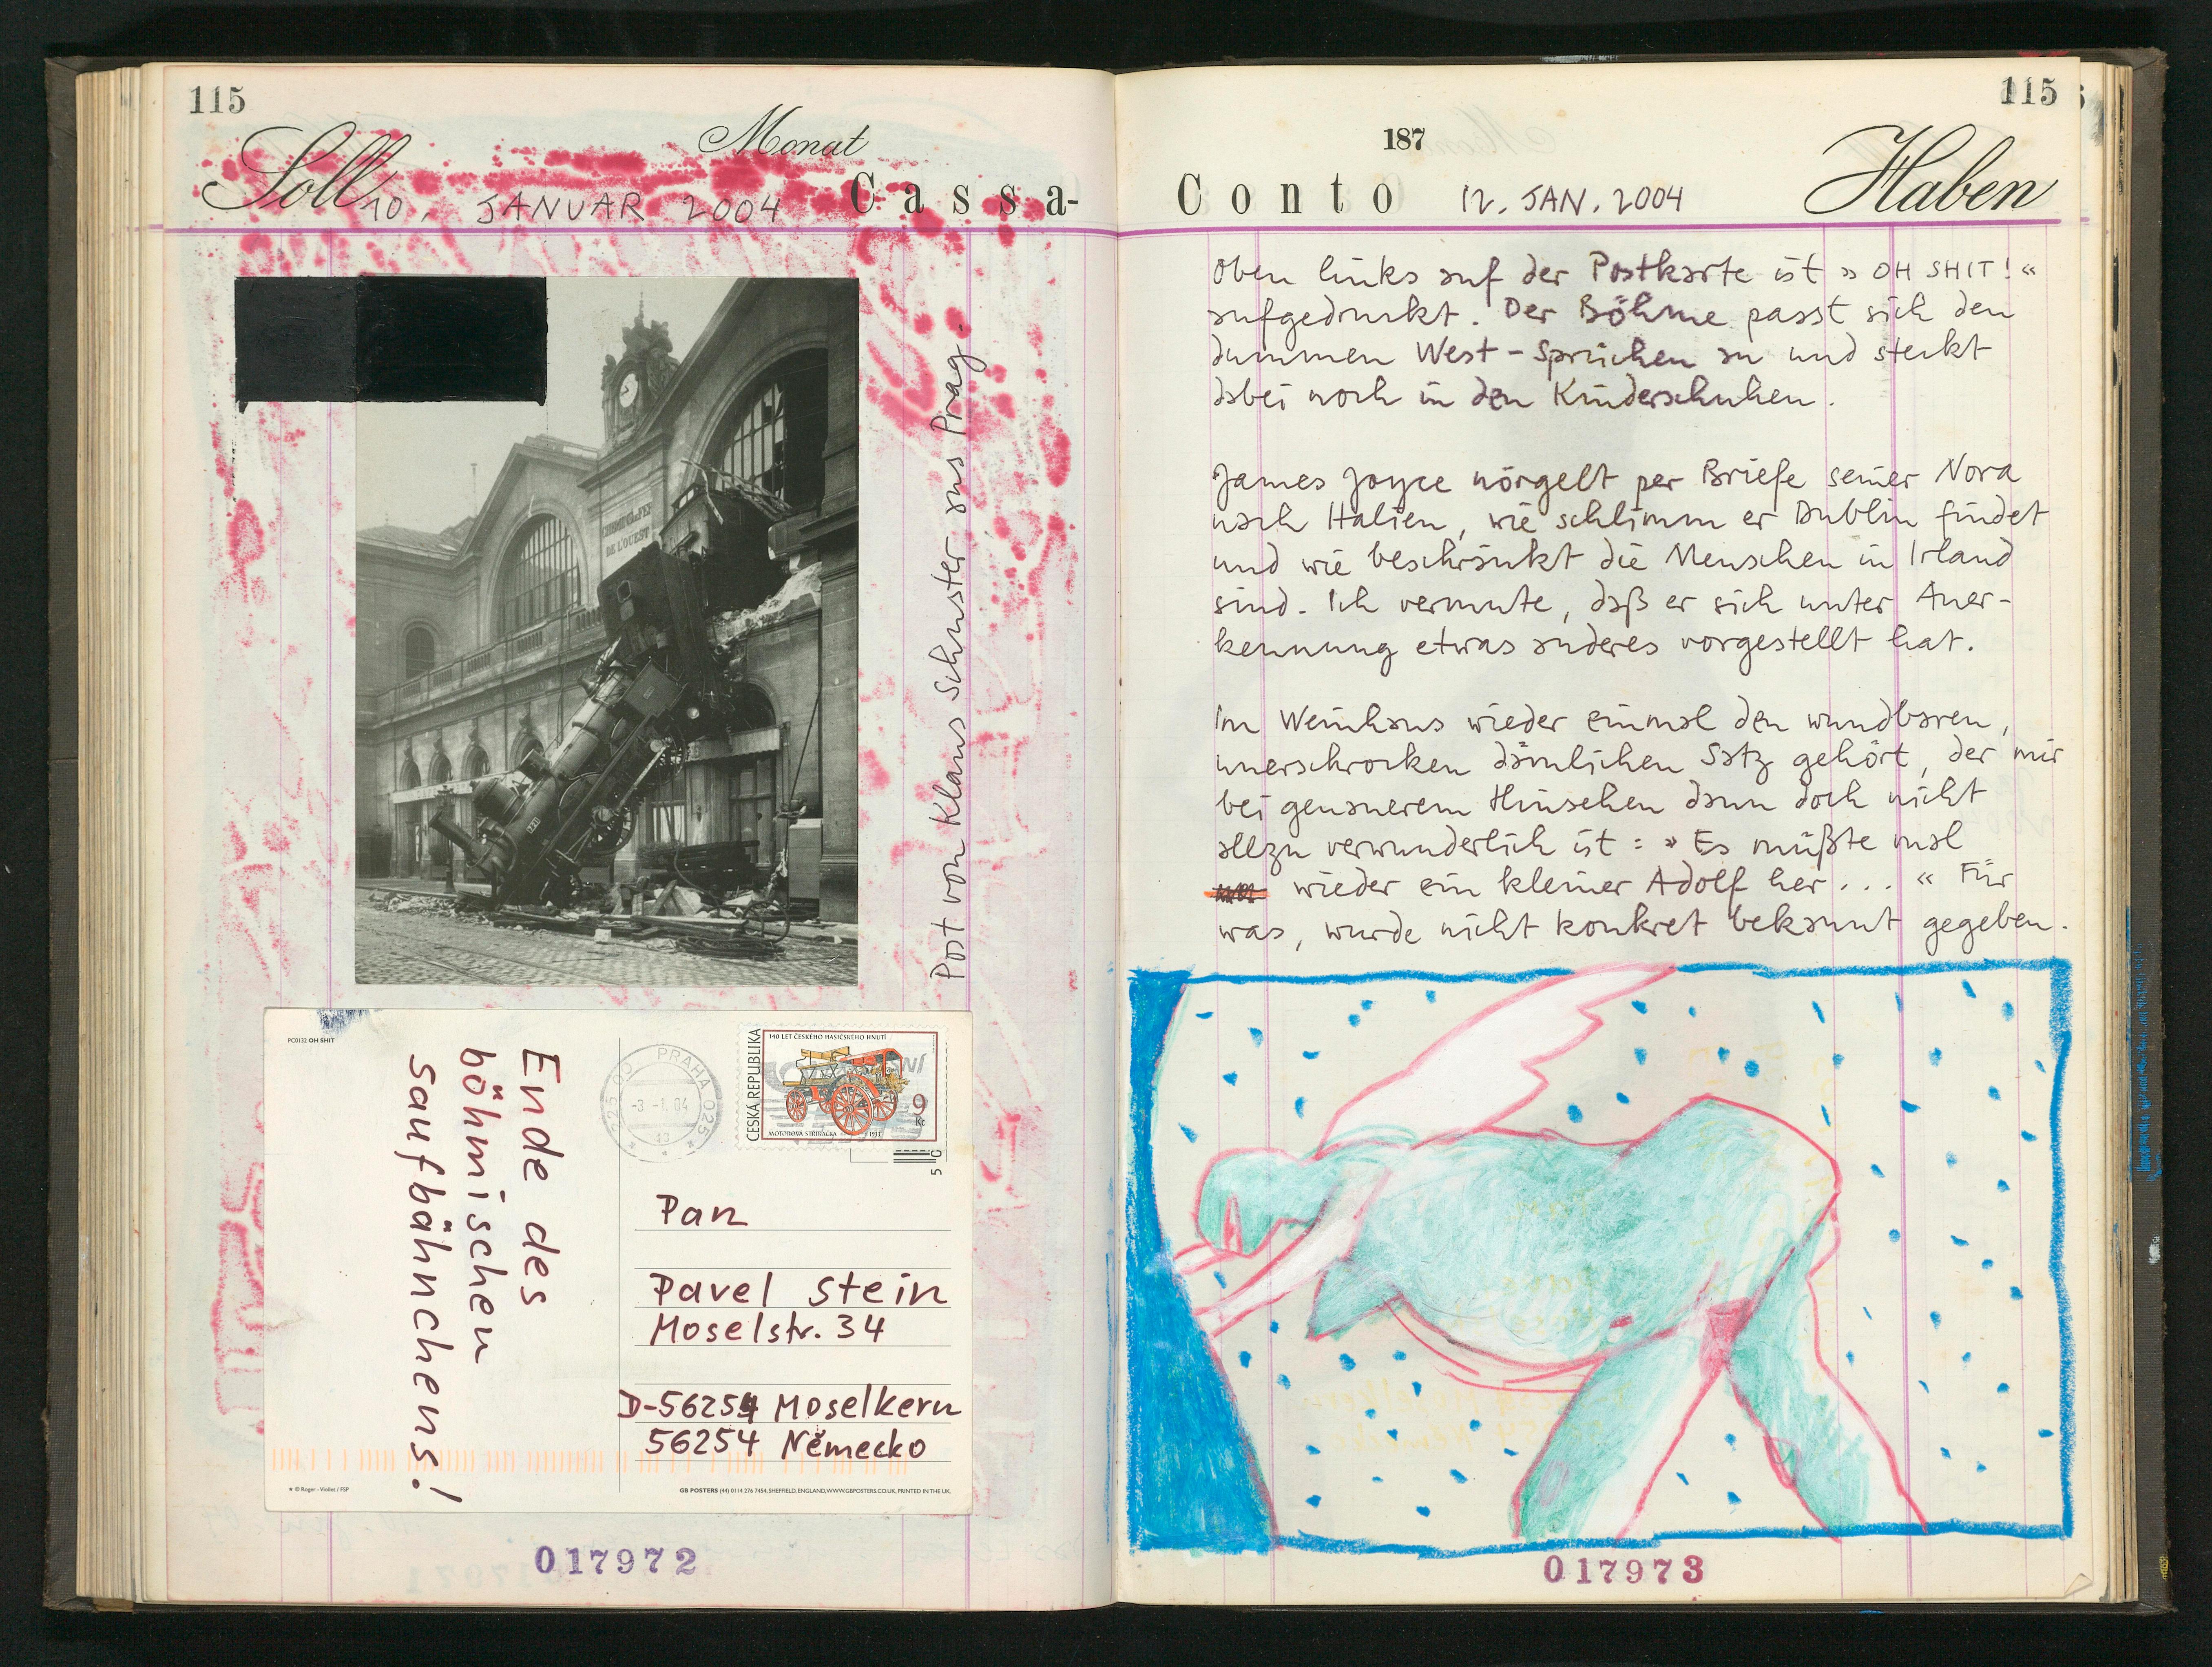 115
Soll
Monat
10. JANUAR 2004
Cassa-
CHEMINS de FER
DE L'OUEST
Post von Klaus Schuster aus Prag.
PC0132 OH SHIT
Ende des
böhmischen
saufbähnchens!
225 00 PRAHA 025
-3.-1.04
43
ČESKÁ REPUBLIKA
140 LET ČESKÉHO HASIČSKÉHO HNUTÍ
9
Kč
MOTOROVÁ STŘÍKAČKA
Pan
Pavel Stein
Moselstr. 34
D-56254 Moselkern
56254 Německo
© Roger-Viollet / FSP
GB POSTERS (44) 0114 276 7454, SHEFFIELD, ENGLAND, WWW.GBPOSTERS.CO.UK, PRINTED IN THE UK.
017972
115
187
Conto
12. JAN. 2004
Haben
Oben links auf der Postkarte ist »OH SHIT!«
aufgedruckt. Der Böhme passt sich den
dummen West-Sprüchen an und steckt
dabei noch in den Kinderschuhen.
James Joyce nörgelt per Briefe seiner Nora
nach Italien, wie schlimm er Dublin findet
und wie beschränkt die Menschen in Irland
sind. Ich vermute, daß er sich unter Aner-
kennung etwas anderes vorgestellt hat.
Im Weinhaus wieder einmal den wundbaren,
unerschrocken dämlichen Satz gehört, der mir
bei genauerem Hinsehen dann doch nicht
allzu verwunderlich ist: »Es müßte mal
wieder ein kleiner Adolf her...« Für
was, wurde nicht konkret bekannt gegeben.
017973